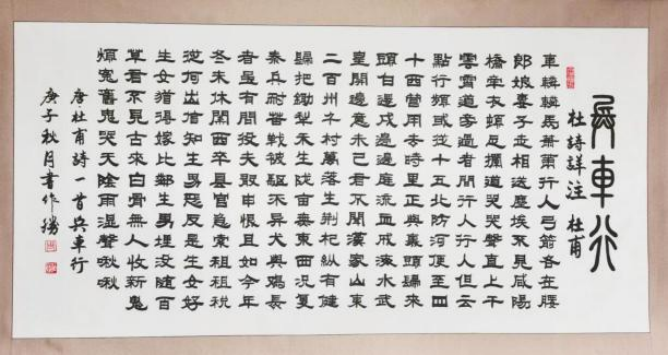 兵車行
杜詩詳注 杜甫
車轔轔馬蕭蕭行人弓箭各在腰
郎娘妻子走相送塵埃不見咸陽
橋牽衣頓足攔道哭哭聲直上干
雲霄道旁過者問行人行人但云
點行頻或從十五北防河便至四
十西營田去時里正與裹頭歸來
頭白還戍邊邊庭流血成海水武
皇開邊意未已君不聞漢家山東
二百州千村萬落生荊杞縱有健
婦把鋤犁禾生隴畝無東西況復
秦兵耐苦戰被驅不異犬與雞長
者雖有問役夫敢申恨且如今年
冬未休關西卒縣官急索租租稅
從何出信知生男惡反是生女好
生女猶得嫁比鄰生男埋沒隨百
草君不見古來白骨無人收新鬼
煩冤舊鬼哭天陰雨濕聲啾啾
唐杜甫詩一首兵車行
庚子秋月書作勝